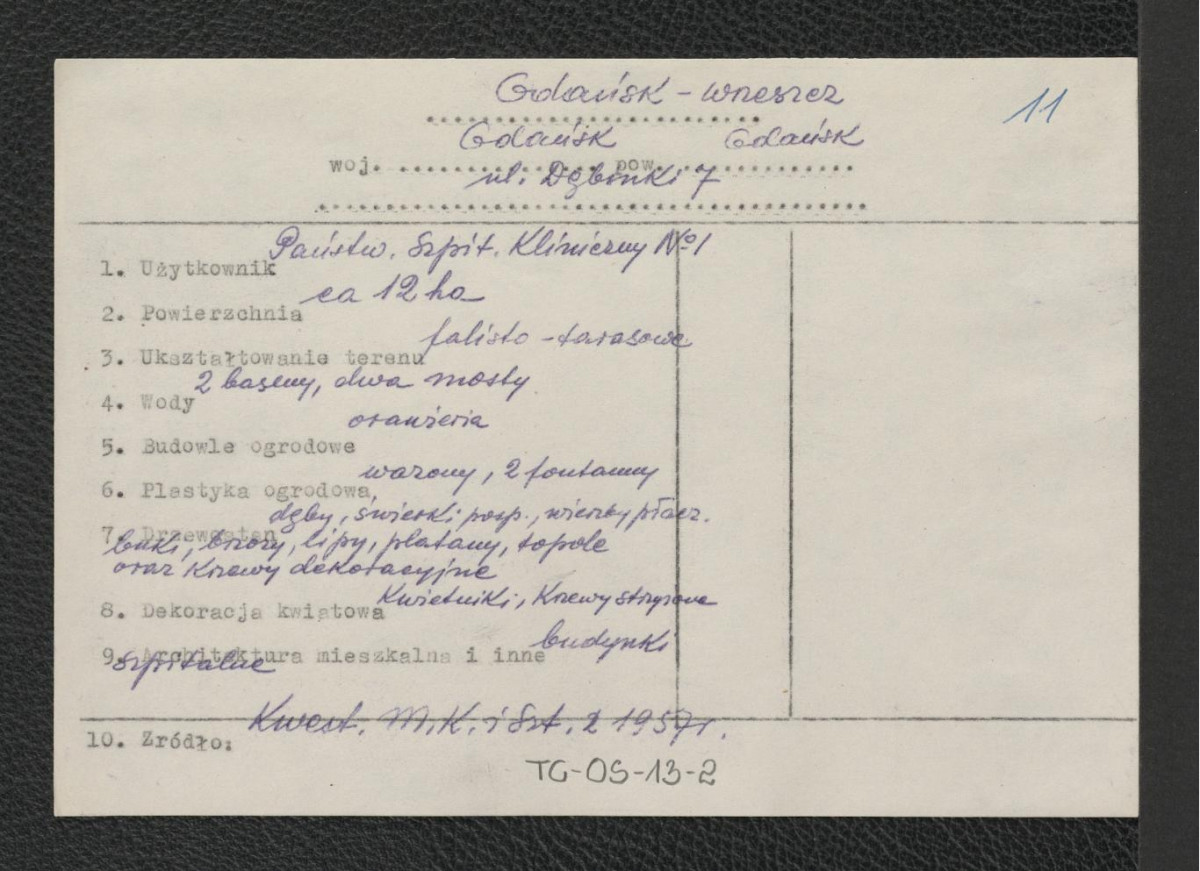 Gdańsk - Wrzeszcz
11
Gdańsk Gdańsk
woj. pow.
ul. Dębinki 7
Państw. Szpit. Kliniczny № 1
1. Użytkownik
ca 12 ha
2. Powierzchnia
falisto - tarasowe
3. Ukształtowanie terenu
2 baseny, dwa mosty
4. Wody
oranżeria
5. Budowle ogrodowe
wazony, 2 fontanny
6. Plastyka ogrodowa,
dęby, świerki posp., wierzby płacz.
7. Drzewostan
buki, brzozy, lipy, platany, topole
oraz krzewy dekoracyjne
Kwietniki, Krzewy strzyżone
8. Dekoracja kwiatowa
budynki
9. Architektura mieszkalna i inne
szpitalne
Kwest. M.K. i Szt. z 1957 r.
10. Zródło:
TG-OS-13-2